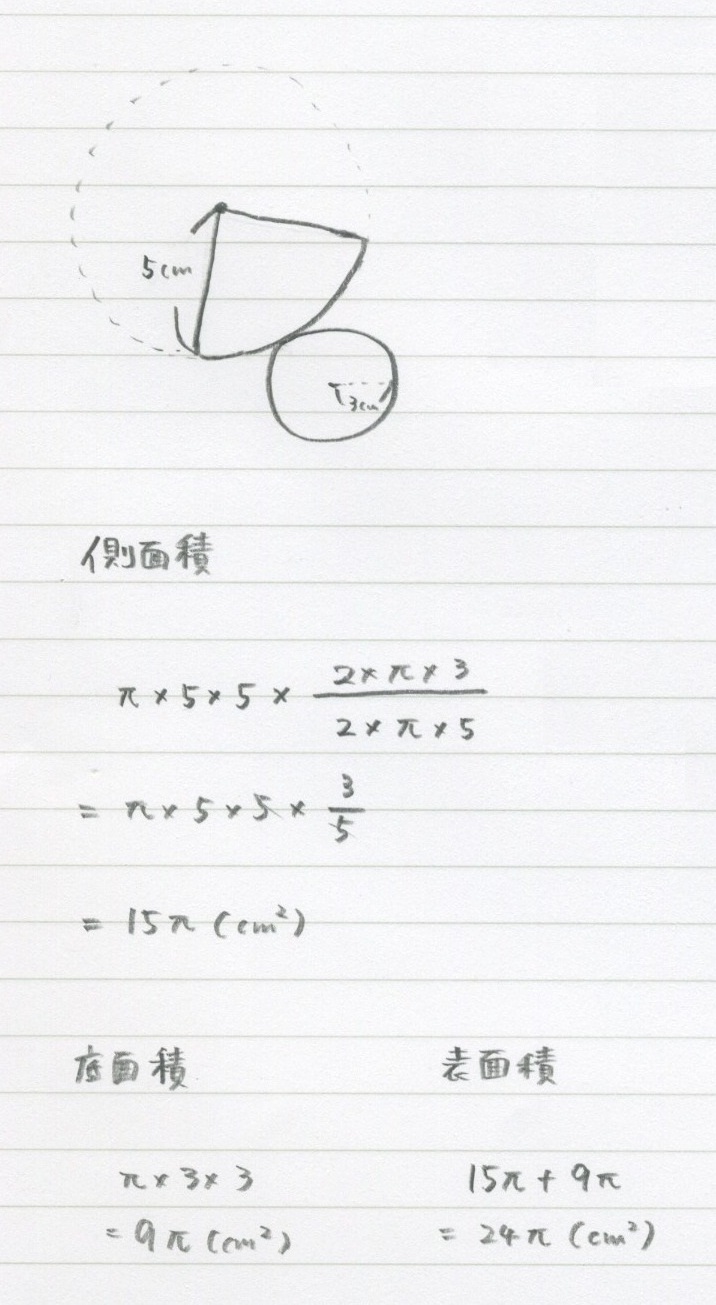 5cm
3cm
側面積
π×5×5× (2×π×3)/(2×π×5)
= π×5×5× 3/5
= 15π (cm²)
底面積
π×3×3
= 9π (cm²)
表面積
15π + 9π
= 24π (cm²)